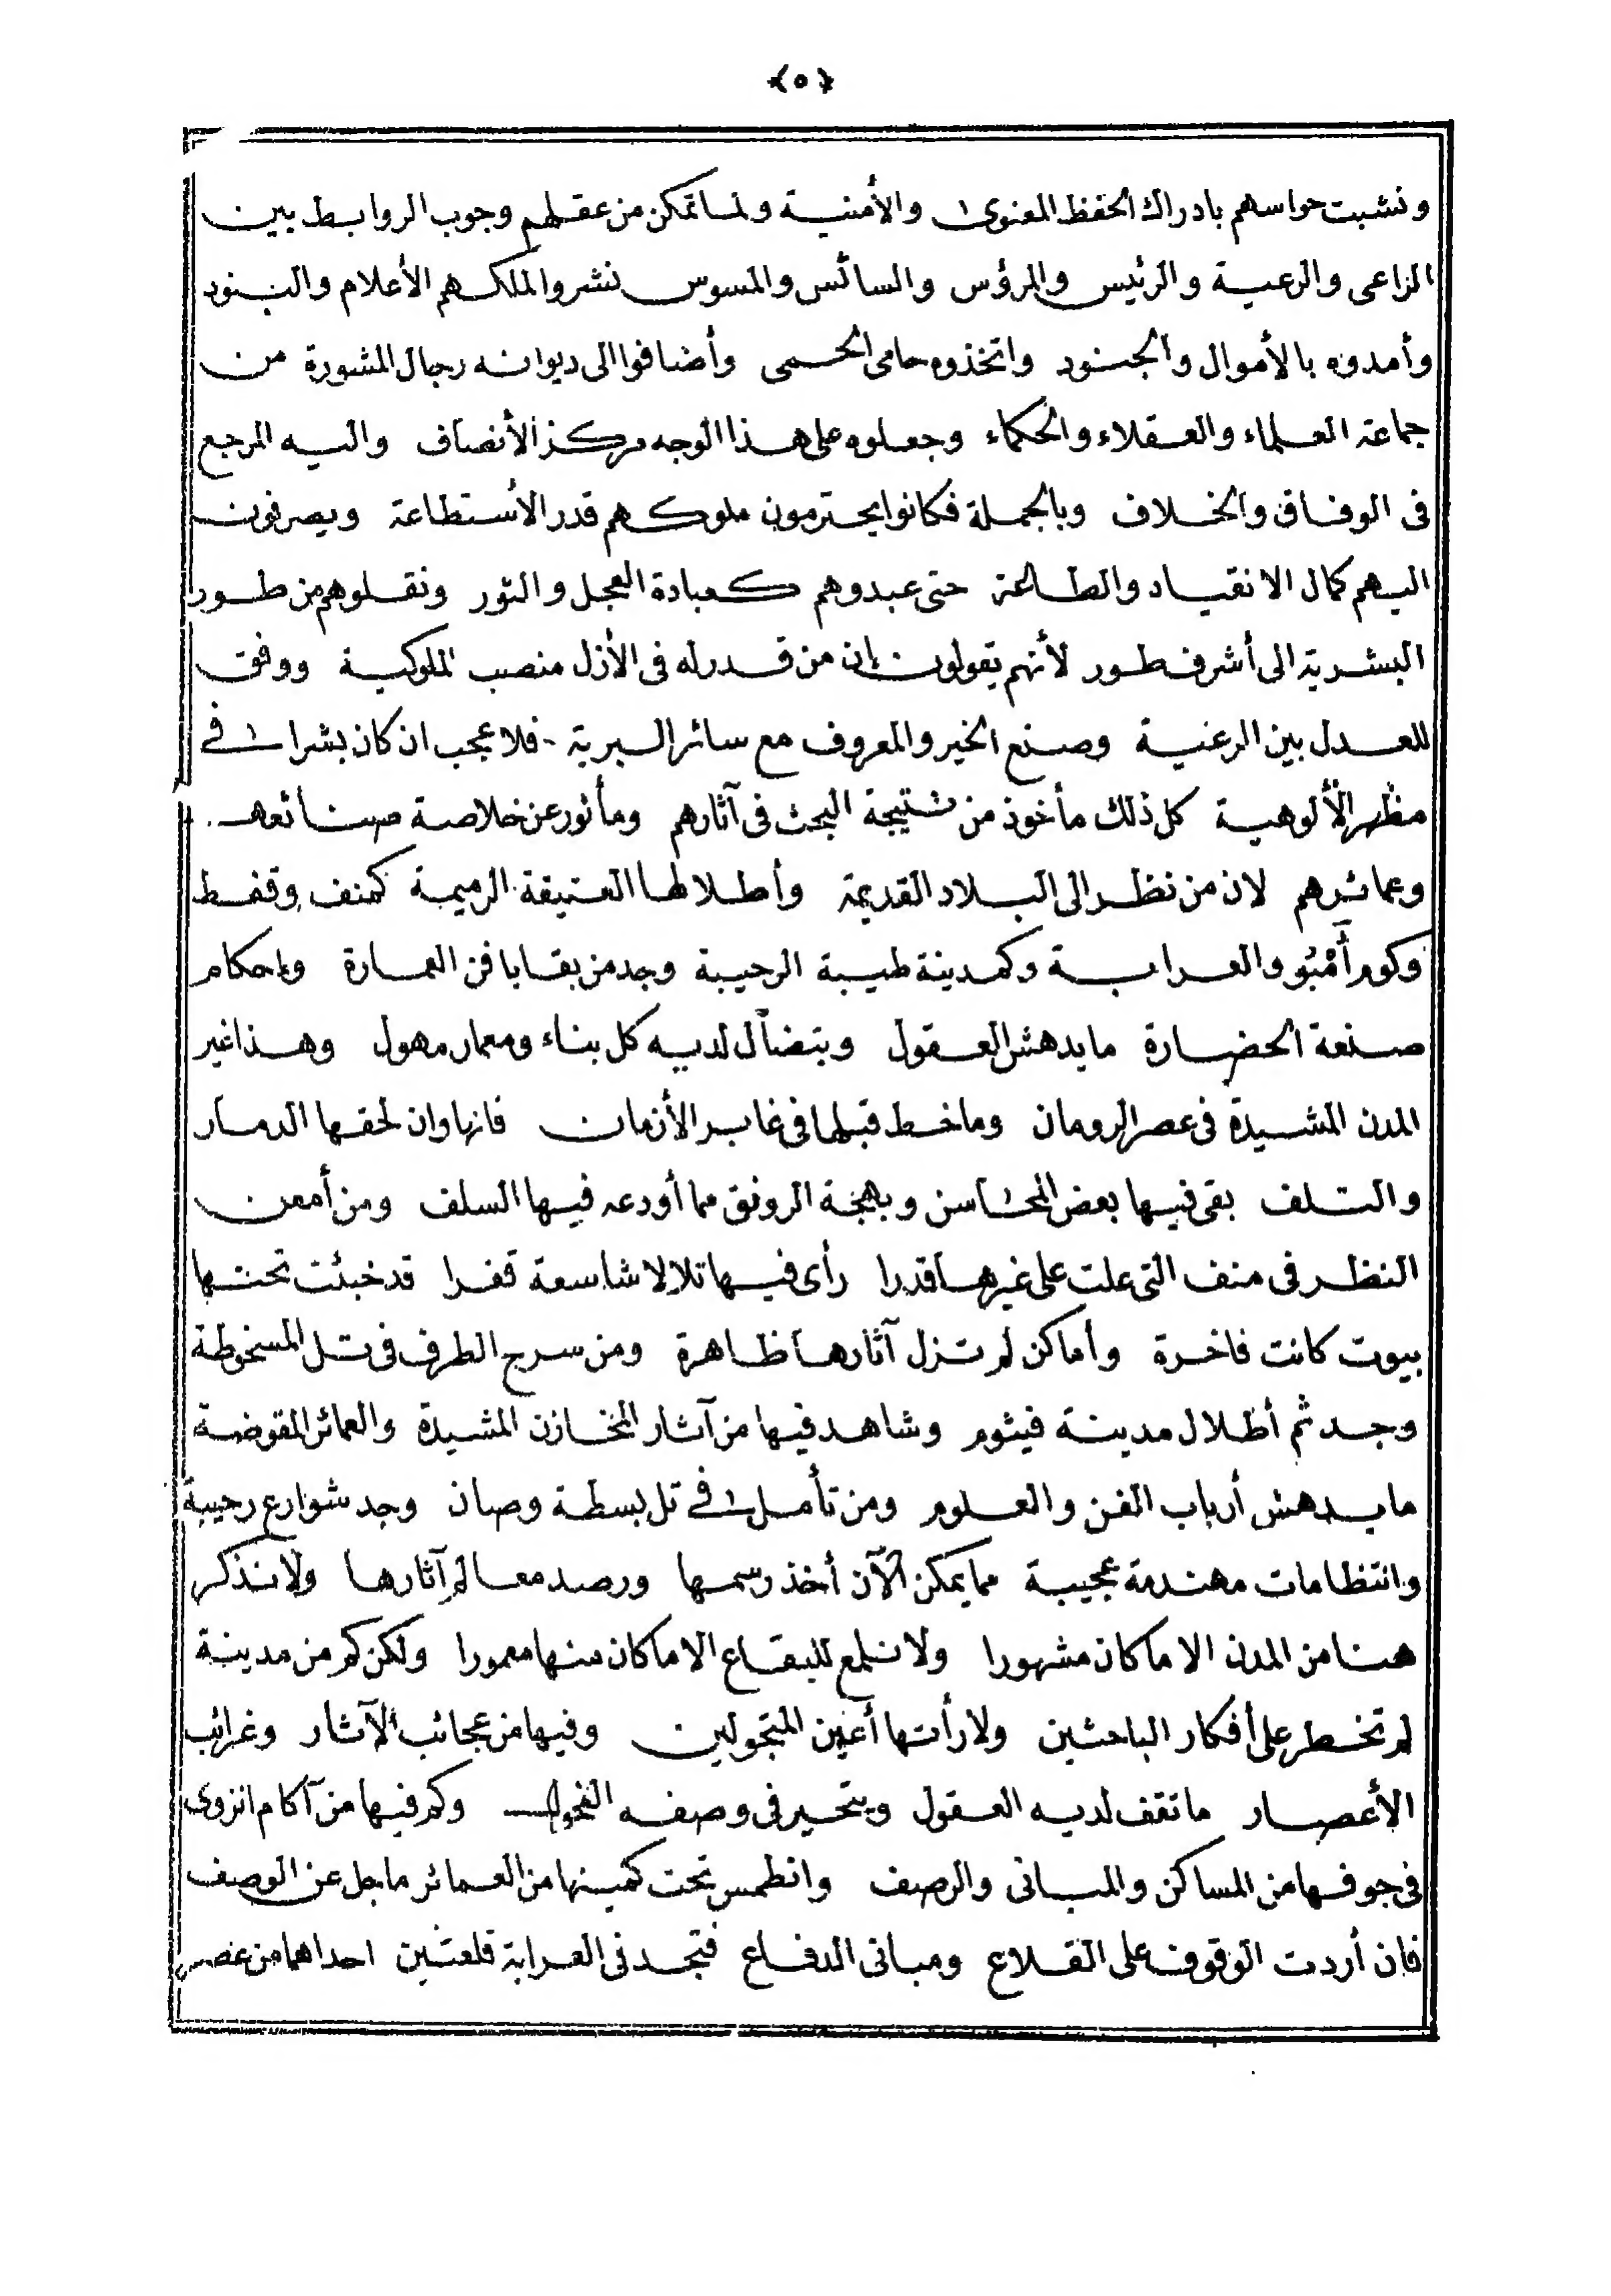 ﴿٥﴾
ونشبت حواسهم بادراك الحفظ المعنوى والأمنية ولما تمكن من عقلهم وجوب الروابط بين
الراعى والرعية والرئيس والمرؤس والسائس والمسوس نشروا لملكهم الأعلام والبنود
وأمدوه بالأموال والجنود واتخذوه حامى الحمى وأضافوا الى ديوانه رجال المشورة من
جماعة العلماء والعقلاء والحكماء وجعلوه على هذا الوجه مركز الأنصاف واليه المرجع
فى الوفاق والخلاف وبالجملة فكانوا يحترمون ملوكهم قدر الأستطاعة ويصرفون
اليهم كمال الانقياد والطاعة حتى عبدوهم كعبادة العجل والثور ونقلوهم من طور
البشرية الى أشرف طور لأنهم يقولون إن من قدر له فى الأزل منصب الملوكية ووفق
للعدل بين الرعية وصنع الخير والمعروف مع سائر البرية - فلا عجب ان كان بشرا فى
مظهر الألوهية كل ذلك مأخوذ من نتيجة البحث فى آثارهم ومأثور عن خلاصة صنائعهم
وعمائرهم لان من نظر الى البلاد القديمة وأطلالها العتيقة الرميمة كمنف وقفط
وكوم أَمْبُو والعرابة وكمدينة طيبة الرحيبة وجد من بقايا فن العمارة وإحكام
صنعة الحضارة ما يدهش العقول ويتضاأل لديه كل بناء ومعمار مهول وهذا غير
المدن المشيدة فى عصر الرومان وما خط قبلها فى غابر الأزمان فانها وان لحقها الدمار
والتلف بقى فيها بعض المحاسن وبهجة الرونق مما أودعه فيها السلف ومن أمعن
النظر فى منف التى علت على غيرها قدرا رأى فيها تلالا شاسعة قفرا قد خبئت تحتها
بيوت كانت فاخرة وأماكن لم تزل آثارها ظاهرة ومن سرح الطرف فى تل المسخوطة
وجد ثم أطلال مدينة فيثوم وشاهد فيها من آثار المخازن المشيدة والعمائر المقوضة
ما يدهش أرباب الفن والعلوم ومن تأمل فى تل بسطة وصان وجد شوارع رحيبة
وانتظامات مهندمة عجيبة مما يمكن الآن أخذ رسمها ورصد معالم آثارها ولا نذكر
هنا من المدن الا ما كان مشهورا ولا نلمع للبقاع الا ما كان منها معمورا ولكن كم من مدينة
لم تخطر على أفكار الباحثين ولا رأتها أعين المتجولين وفيها من عجائب الآثار وغرائب
الأعصار ما تقف لديه العقول ويتحير فى وصفه الفحول وكم فيها من آكام انزوى
فى جوفها من المساكن والمبانى والرصف وانطمس تحت كمينها من العمائر ما جل عن الوصف
فان أردت الوقوف على القلاع ومبانى الدفاع فتجد فى العرابة قلعتين احداهما من عصر